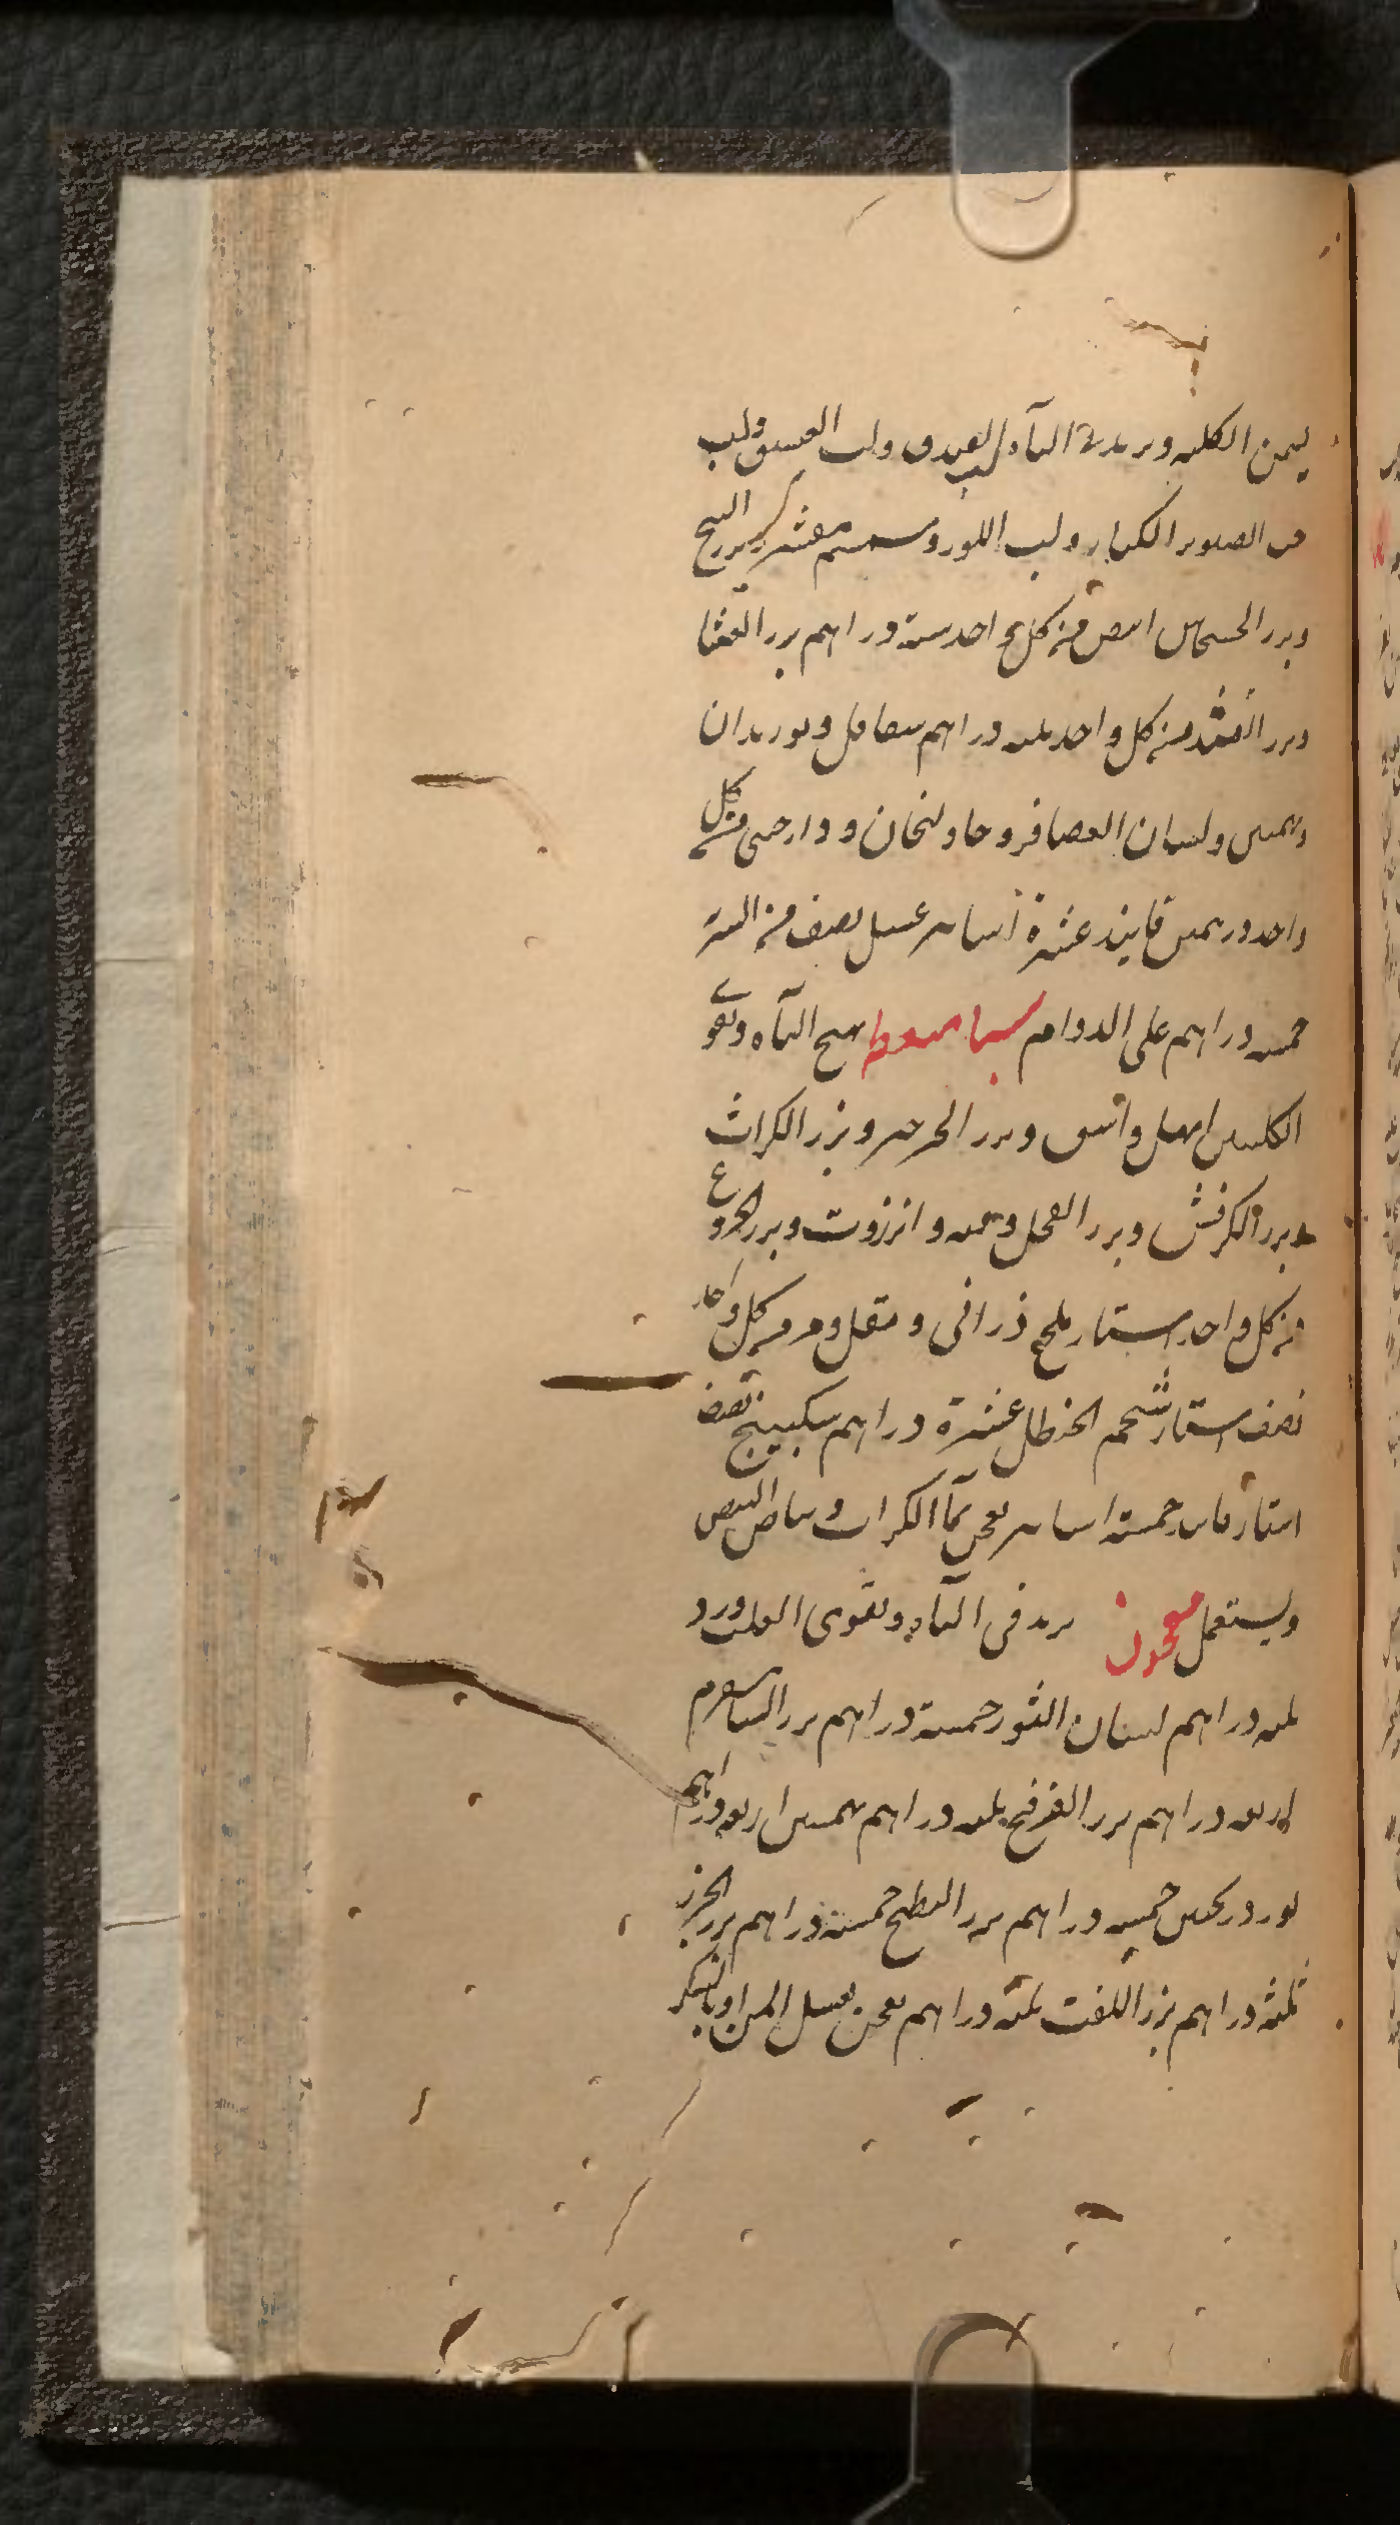 يسمن الكليه ويزيد في الباه لب البندق ولب الفستق ولب
حب الصنوبر الكبار ولب اللوز وسمسم مقشر بزر البنج
وبزر الخشخاش ابيض من كل واحد ستة دراهم بزر القثا
وبزر القثد من كل واحد ثلثه دراهم شقاقل وبوزيدان
وبهمنين ولسان العصافير وخاولنجان ودارصيني من كل
واحد درهمين فانيذ عشرة اساتير عسل نصف من الشربة
خمسه دراهم على الدوام يهيج الباه ويقوى
الكليتين ابهل وانيسون وبزر الجرجير وبزر الكراث
وبزر الكرفس وبزر الفجل وانزروت وبزر الخروع
من كل واحد استار ملح ذراني ومقل ومر من كل واحد
نصف استار شحم الحنظل عشرة دراهم سكبينج نصف
استار خمسة اساتير يعجن بمآ الكراث وبياض البيض
ويستعمل معجون يزيد في الباه ويقوى القلب ورد
ثلثه دراهم لسان الثور خمسة دراهم بزر الشاهسفرم
اربعه دراهم بزر الفرفخ ثلثه دراهم بهمنين اربعه دراهم
خمسه دراهم بزر البطيخ خمسة دراهم بزر الجزر
ثلثة دراهم بزر اللفت ثلثة دراهم يعجن بعسل اللبن او بالسكر